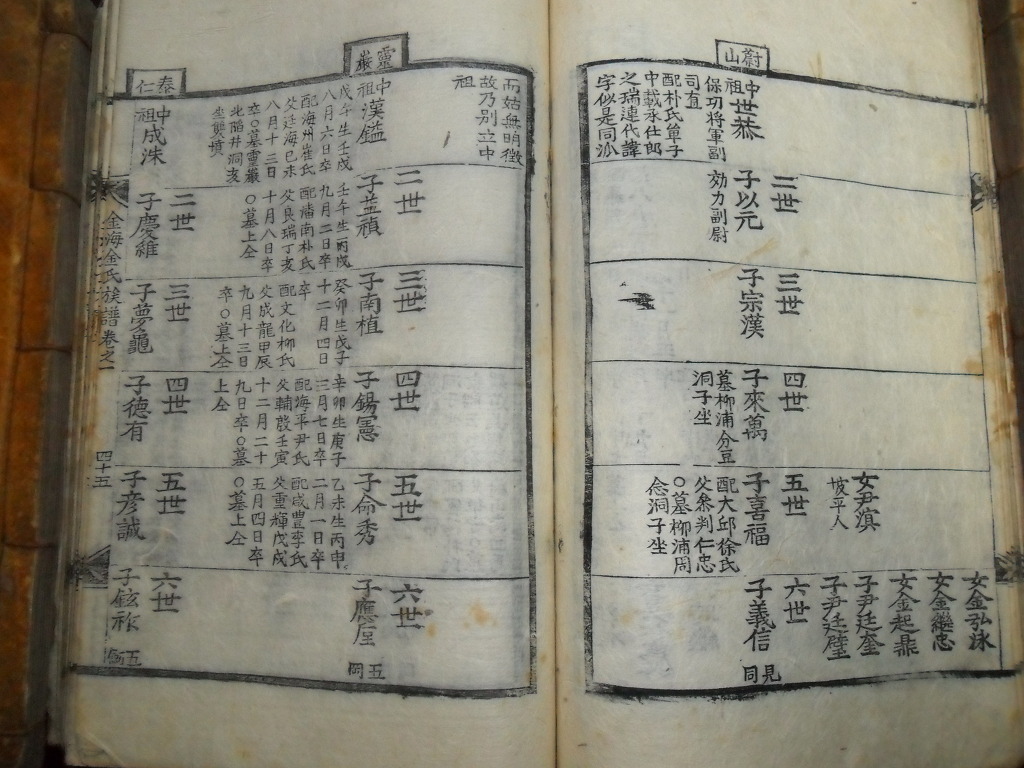 蔚山
中祖世恭
保功將軍副
司直
配朴氏單子
中載承仕郎
之瑞連代諱
字似是同派
而姑無明徵
故乃別立中
祖
二世
子以元
効力副尉
三世
子宗漢
四世
子來萬
墓柳浦分豆
洞子坐
女尹滇
坡平人
五世
子喜福
配大邱徐氏
父叅判仁忠
○墓柳浦周
念洞子坐
女金弘泳
女金繼忠
女金起鼎
子尹廷奎
子尹廷璧
六世
子義信
見同
靈巖
中祖漢鎰
戊午生壬戌
八月六日卒
配海州崔氏
父廷海己未
八月十三日
卒○墓靈巖
北陷井洞亥
坐雙墳
二世
子益禎
壬午生丙戌
九月二日卒
配潘南朴氏
父良瑞丁亥
十月八日卒
○墓上仝
三世
子南植
癸卯生戊子
十二月四日
卒
配文化柳氏
父成龍甲辰
九月十三日
卒○墓上仝
四世
子錫憲
辛卯生庚子
三月七日卒
配海平尹氏
父輔殷壬寅
十二月二十
九日卒○墓
上仝
五世
子命秀
乙未生丙申
二月一日卒
配咸豊李氏
父重輝戊戌
五月四日卒
○墓上仝
六世
子應
五岡
泰仁
中祖成洙
二世
子慶維
三世
子夢龜
四世
子德有
五世
子彥誠
六世
子鉉祚
五
金海金氏族譜卷之一
四十五